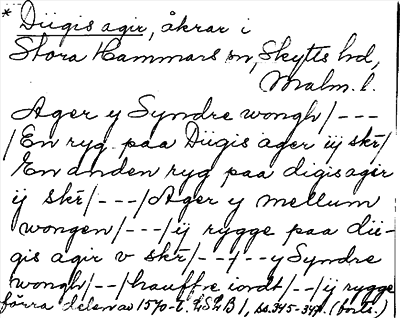 * Dügis agir, åkrar i
Stora Hammars sn, Skytts hd,
Malm. l.
Ager y Syndre wongh/---
/En ryg paa Dügis ager iij skr/
En anden ryg paa digis agir
ij skr/---/Ager y mellum
wongen/---/ij rygge paa dü-
gis agir v skr/--y--y Syndre
wongh/--/hauffre iordt/--/ij rygge
förra delen av 1570-t. LSLB 1, ss. 345-347. (forts.)